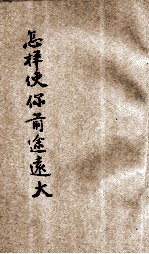 怎样使你前途遠大